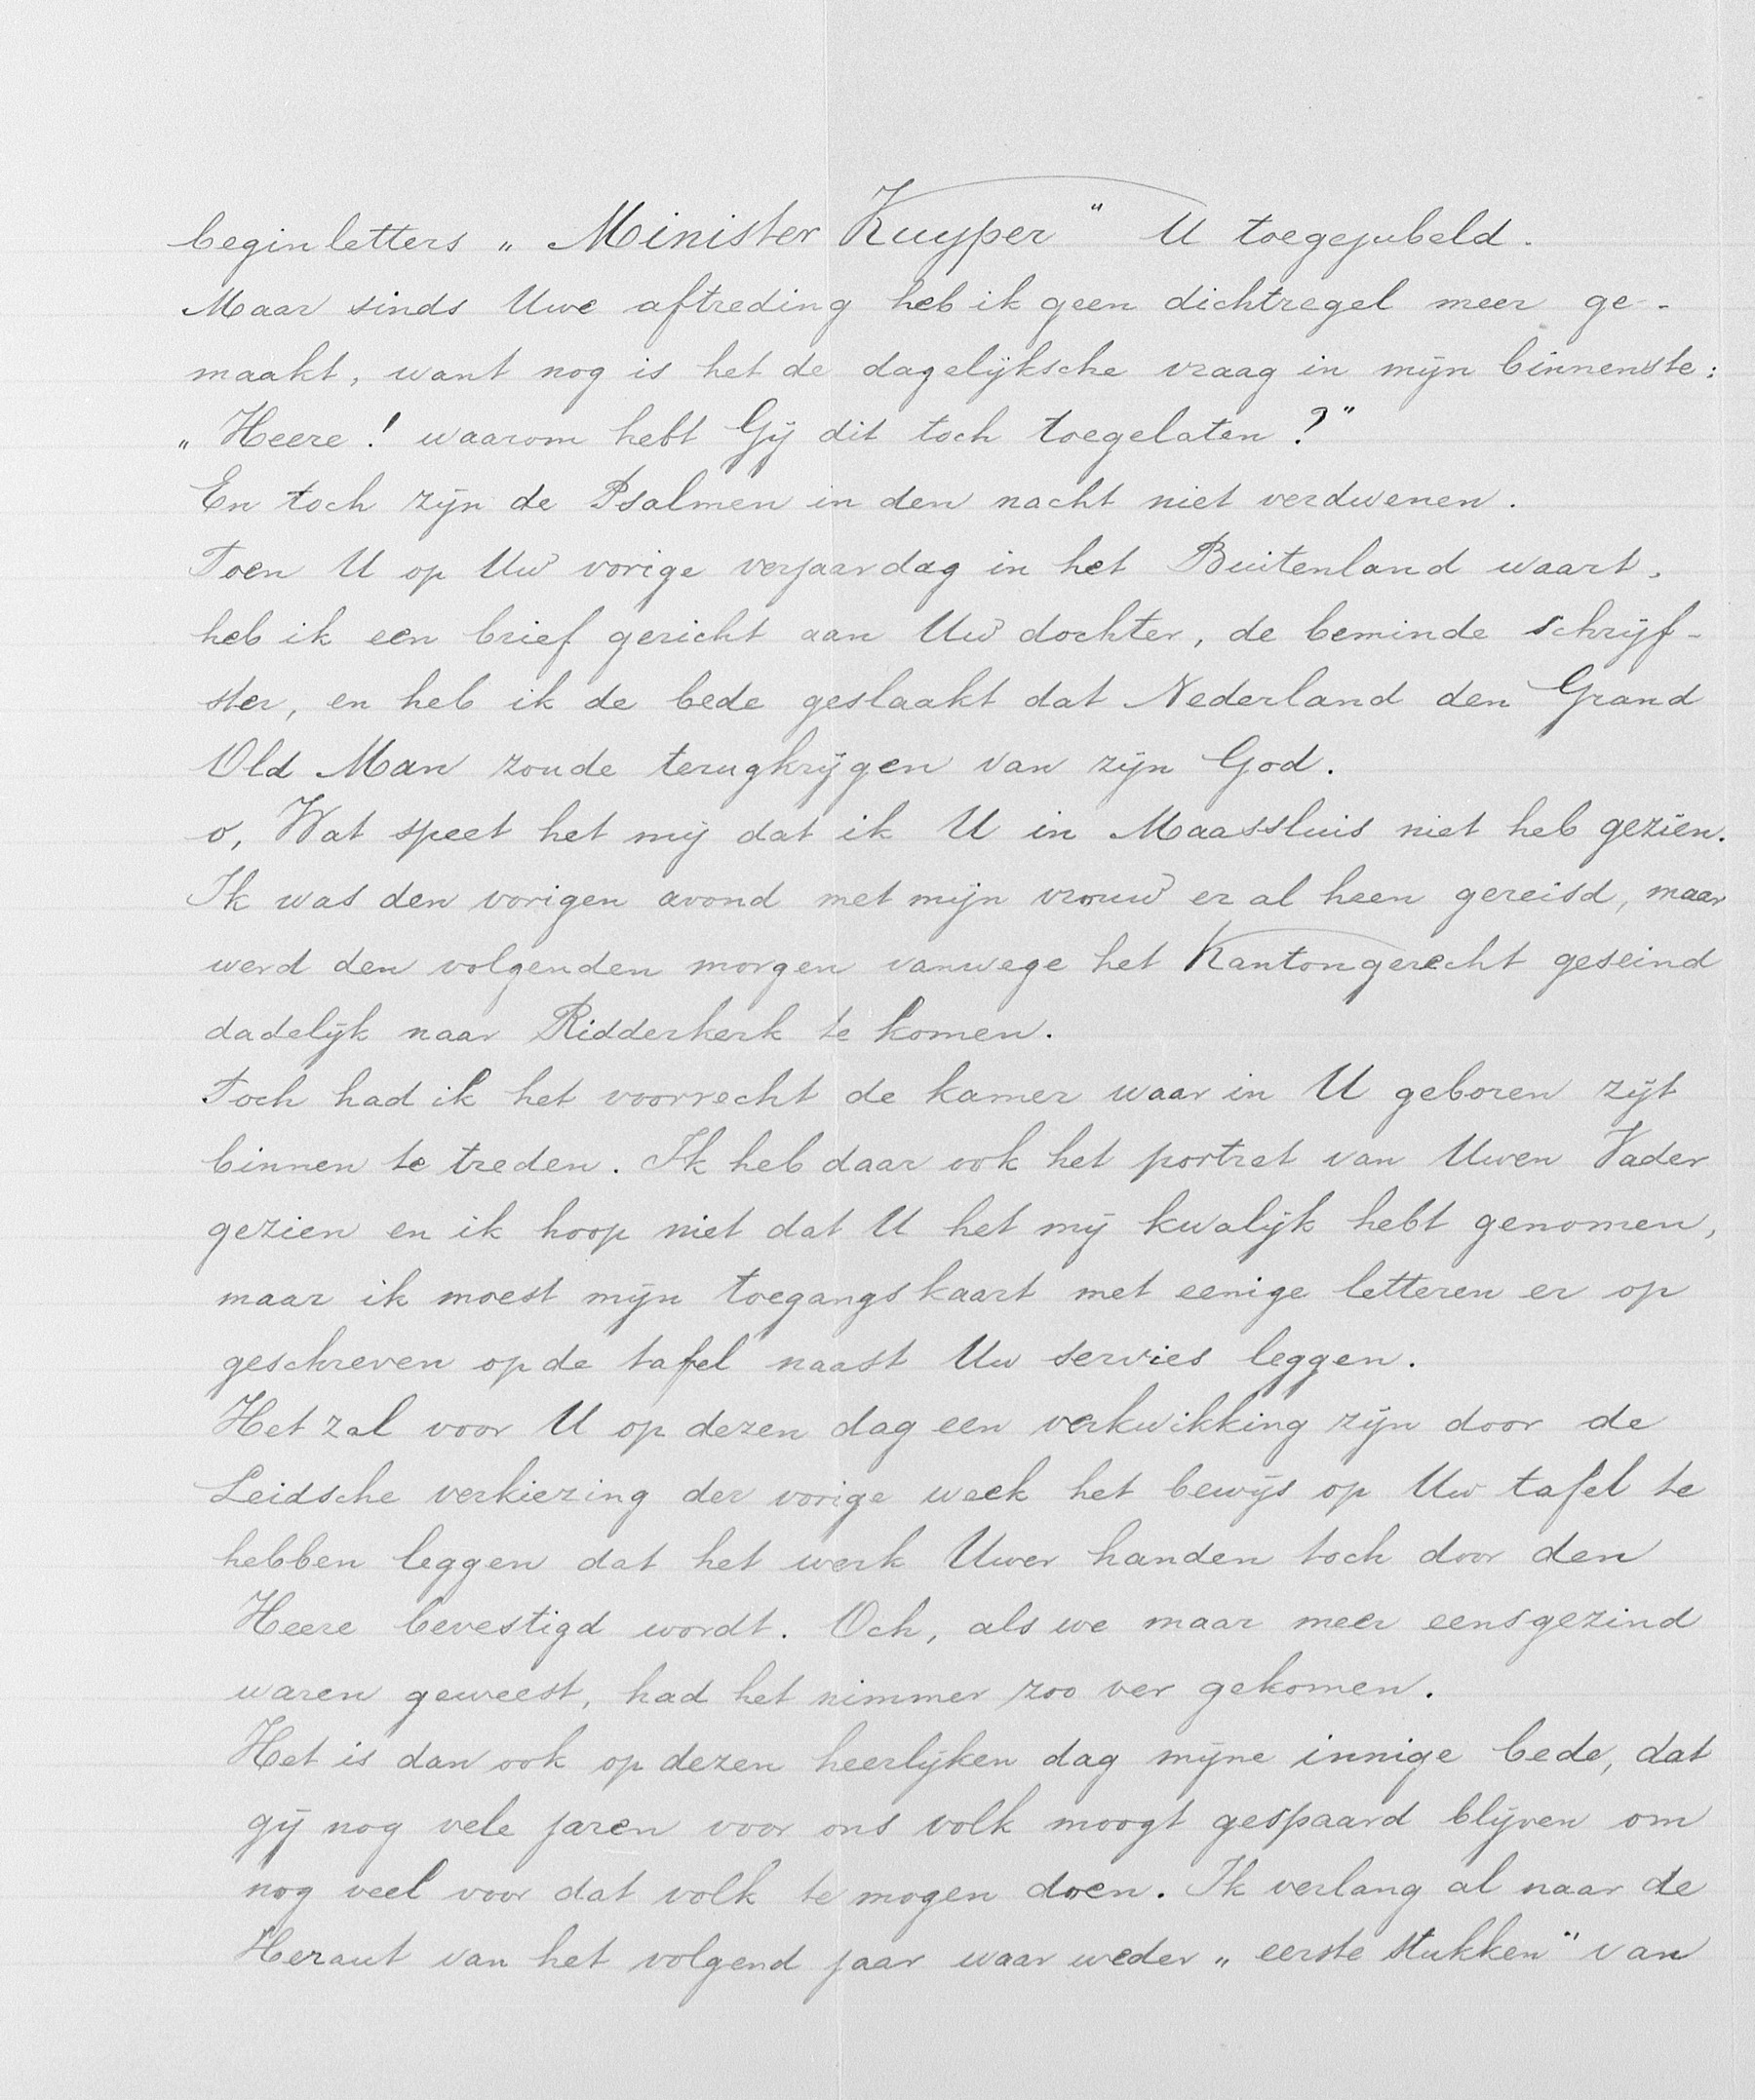 beginletters „Minister Kuyper" U toegejubeld.
Maar sinds Uwe aftreding heb ik geen dichtregel meer ge-
maakt, want nog is het de dagelijksche vraag in mijn binnenste:
„Heere! waarom hebt Gij dit toch toegelaten?"
En toch zijn de Psalmen in den nacht niet verdwenen.
Toen U op Uw vorige verjaardag in het Buitenland waart,
heb ik een brief gericht aan Uw dochter, de beminde schrijf-
ster, en heb ik de bede geslaakt dat Nederland den Grand
Old Man zoude terugkrijgen van zijn God.
o, Wat speet het mij dat ik U in Maassluis niet heb gezien.
Ik was den vorigen avond met mijn vrouw er al heen gereisd, maar
werd den volgenden morgen vanwege het Kantongerecht geseind
dadelijk naar Ridderkerk te komen.
Toch had ik het voorrecht de kamer waar in U geboren zijt
binnen te treden. Ik heb daar ook het portret van Uwen Vader
gezien en ik hoop niet dat U het mij kwalijk hebt genomen,
maar ik moest mijn toegangskaart met eenige letteren er op
geschreven op de tafel naast Uw servies leggen.
Het zal voor U op dezen dag een verkwikking zijn door de
Leidsche verkiezing der vorige week het bewijs op Uw tafel te
hebben leggen dat het werk Uwer handen toch door den
Heere bevestigd wordt. Och, als we maar meer eensgezind
waren geweest, had het nimmer zoo ver gekomen.
Het is dan ook op dezen heerlijken dag mijne innige bede, dat
gij nog vele jaren voor ons volk moogt gespaard blijven om
nog veel voor dat volk te mogen doen. Ik verlang al naar de
Heraut van het volgend jaar waar weder „eerste stukken" van